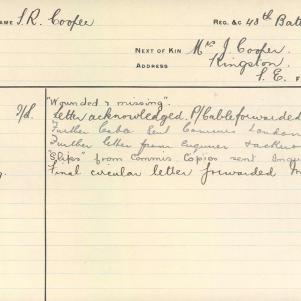 NAME S. R. Cooper REG. &C 48th Batt
NEXT OF KIN Mrs J Cooper.
ADDRESS Kingston.
S. E.
"Wounded & missing".
Letter acknowledged. P/Cable forwarded
Further Cable sent Commis London
Further letter from enquirer & acknow
"Slips" from Commis. Copies sent Enqui
Final circular letter forwarded